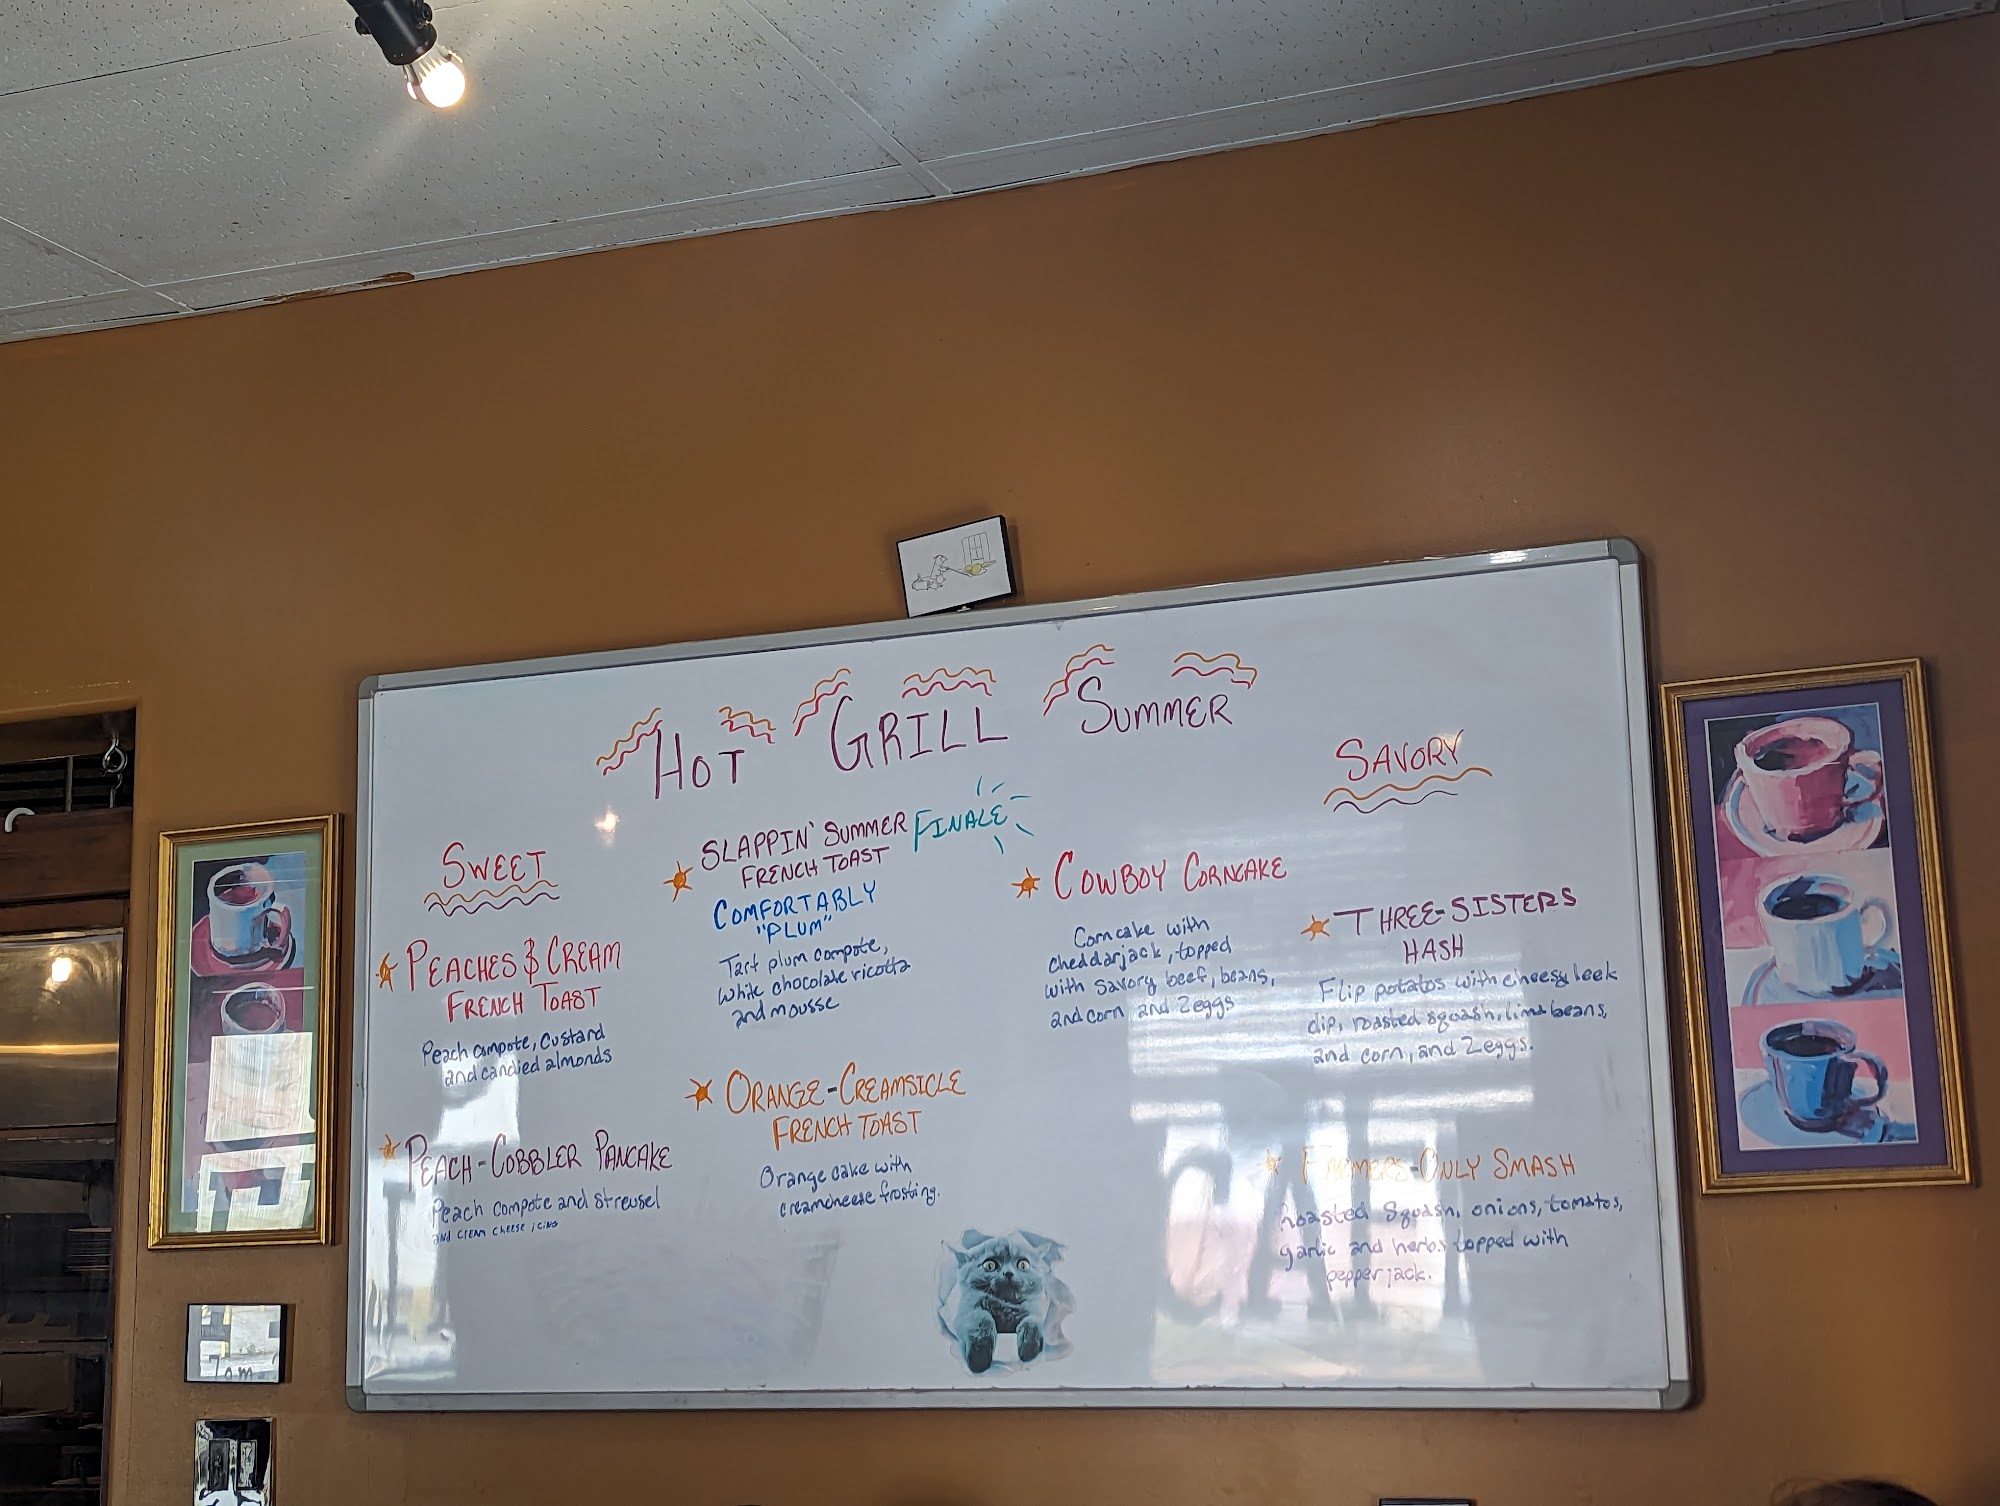 HOT GRILL SUMMER
SWEET
PEACHES & CREAM
FRENCH TOAST
Peach compote, custard
and candied almonds
PEACH-COBBLER PANCAKE
Peach compote and streusel
and cream cheese icing
SLAPPIN' SUMMER FINALE
FRENCH TOAST
COMFORTABLY
"PLUM"
Tart plum compote,
white chocolate ricotta
and mousse
ORANGE-CREAMSICLE
FRENCH TOAST
Orange cake with
creamcheese frosting.
SAVORY
COWBOY CORNCAKE
Corncake with
cheddarjack, topped
with savory beef, beans,
and corn and 2eggs
THREE-SISTERS
HASH
Flip potatos with cheesy leek
dip, roasted squash, lima beans,
and corn, and 2eggs.
FARMERS-ONLY SMASH
roasted squash, onions, tomatos,
garlic and herbs topped with
pepper jack.
CAFE